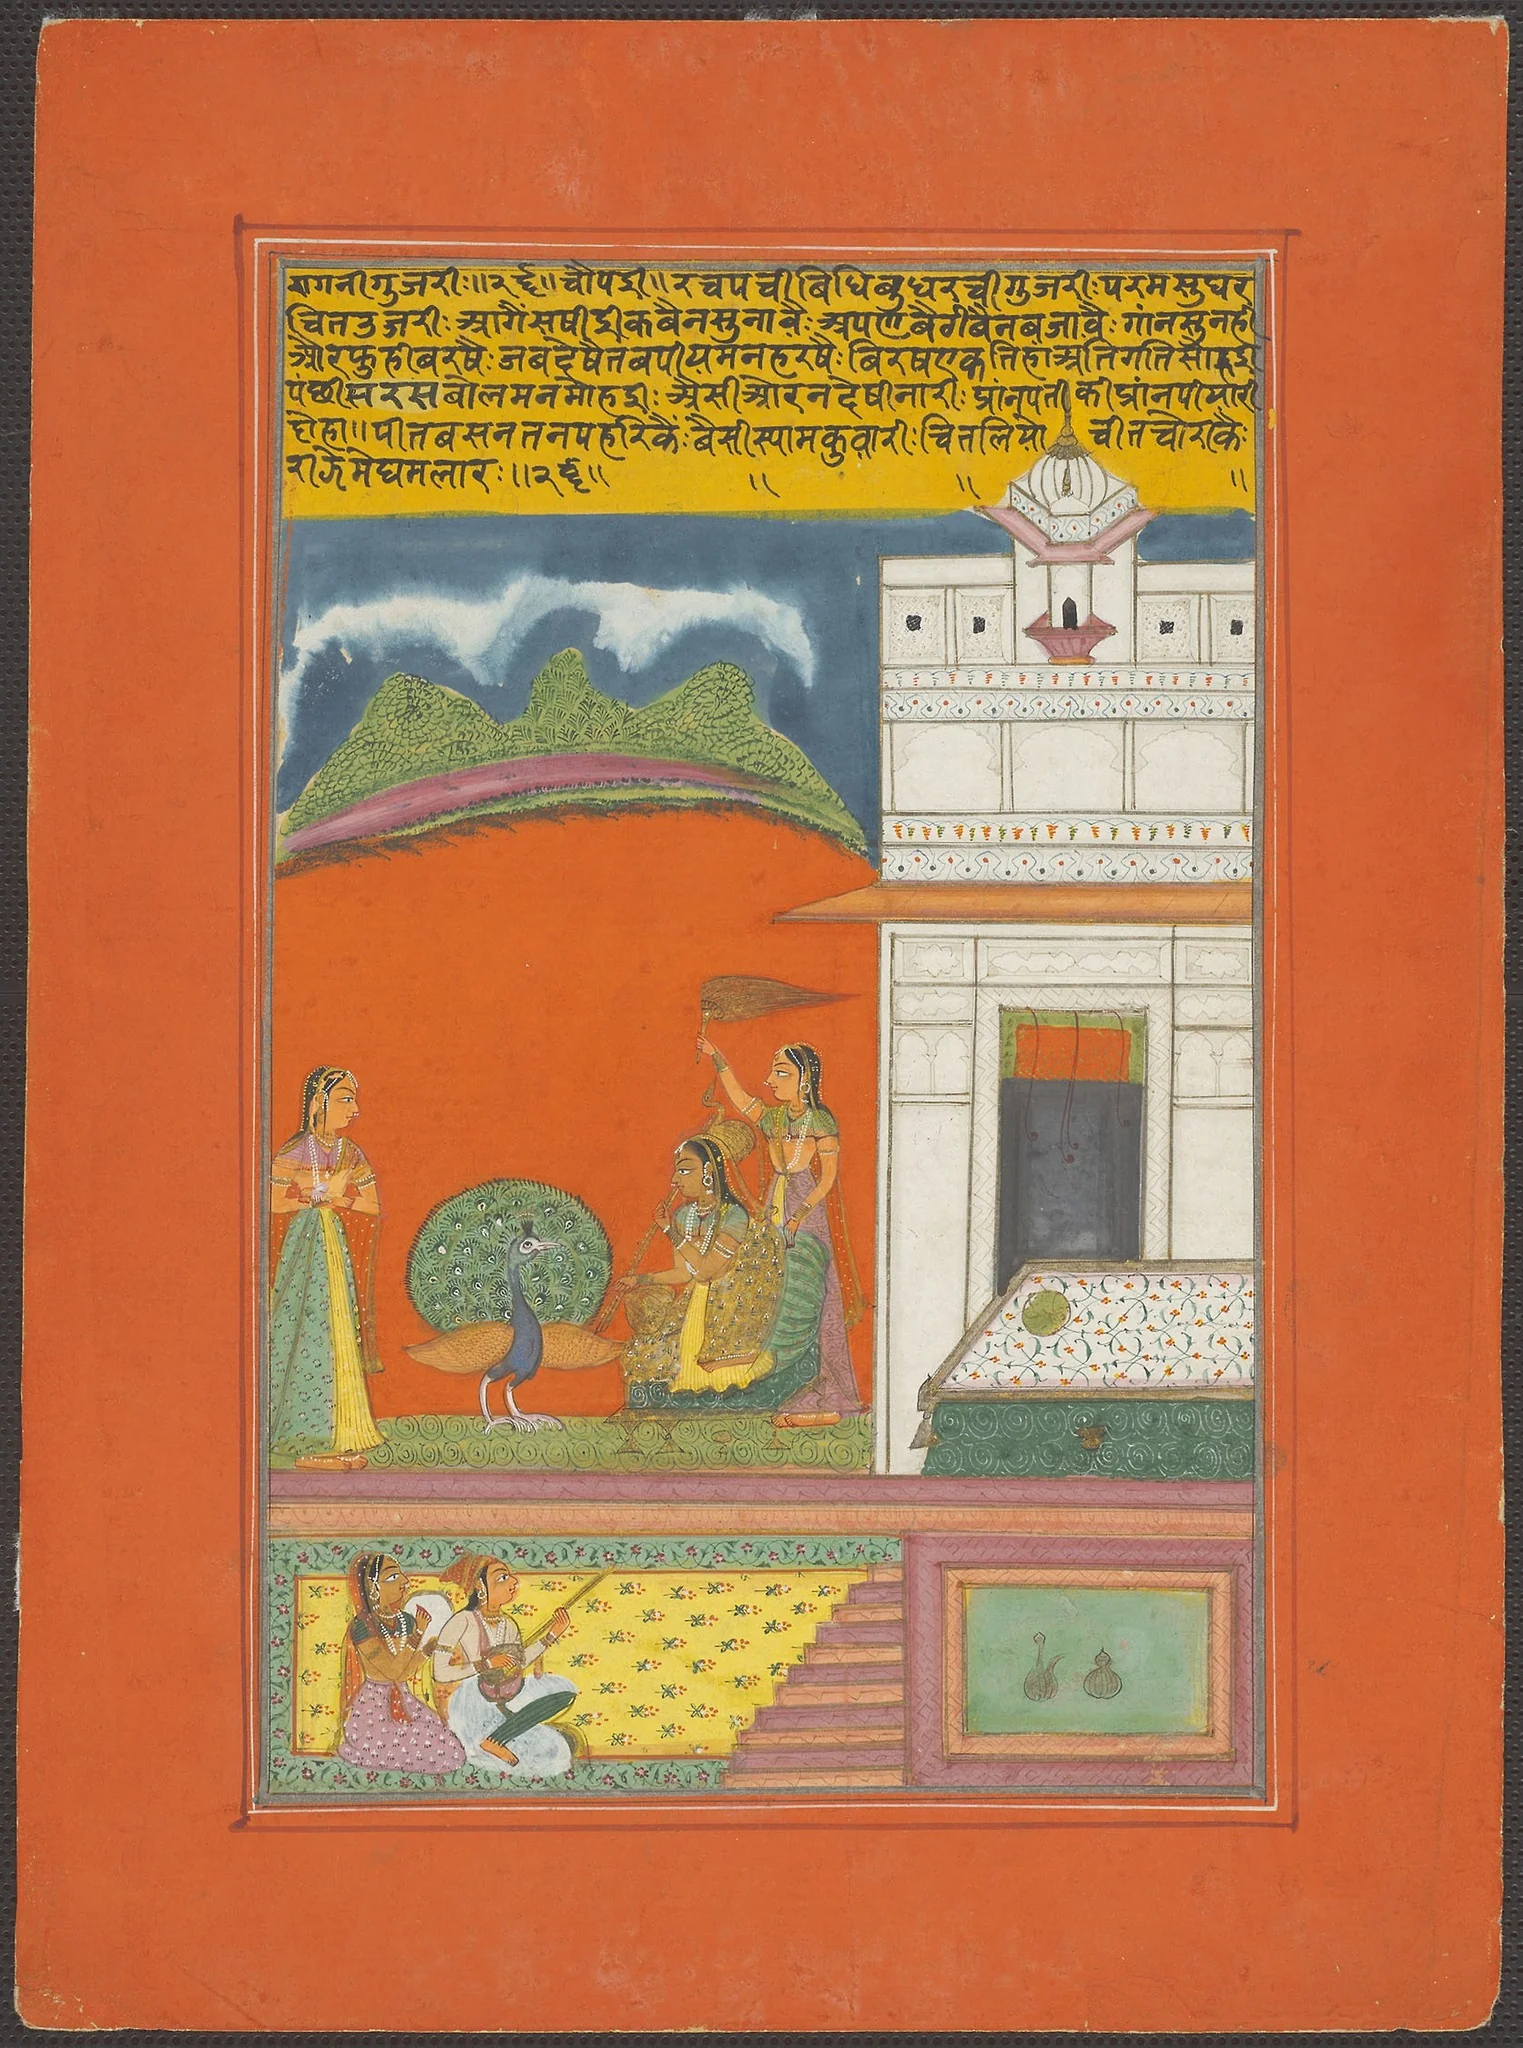 रागनी गुजरी: ॥२६॥ चौपई॥ रच्च पची बिधि बुध रच्ची गुजरी: परम सुघर
चित उजरी: आगैं सषी ईक बैन सुनावै: अपणै बैठी बैन बजावै: गांन सुन ही
और फुही बरषै: जब देषै तब पीय मन हरषै: बिरष एक तिहा अति गति
पंछी सरस बोल मन मोहई: अैसी और न देषी नारी: प्रांनपती की प्रांन पीयारी
दोहा॥ पीत बसन तन पहरिकैं: बैसी स्याम कुवारी: चित लियो चीत चोरिकै:
रागे मेघ मलार: ॥२६॥ ॥ ॥ ॥